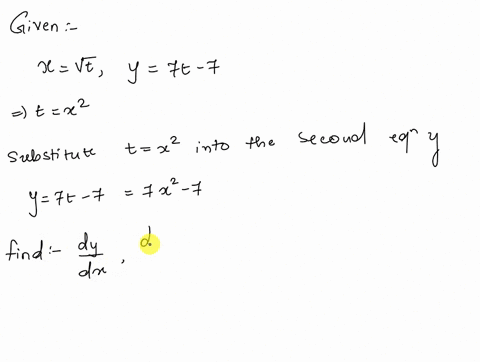 Given :-
x = √t, y = 7t - 7
⇒ t = x²
Substitute t = x² into the second eqⁿ y
y = 7t - 7 = 7x² - 7
find :- dy/dx , d